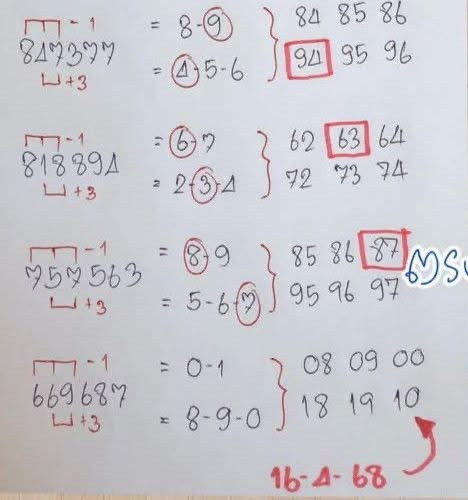 - 1
847377 = 8-9 84 85 86
+3 = 4-5-6 94 95 96
- 1
818894 = 6-7 62 63 64
+3 = 2-3-4 72 73 74
- 1
757563 = 8-9 85 86 87
+3 = 5-6-7 95 96 97
- 1
669687 = 0-1 08 09 00
+3 = 8-9-0 18 19 10
16-4-68